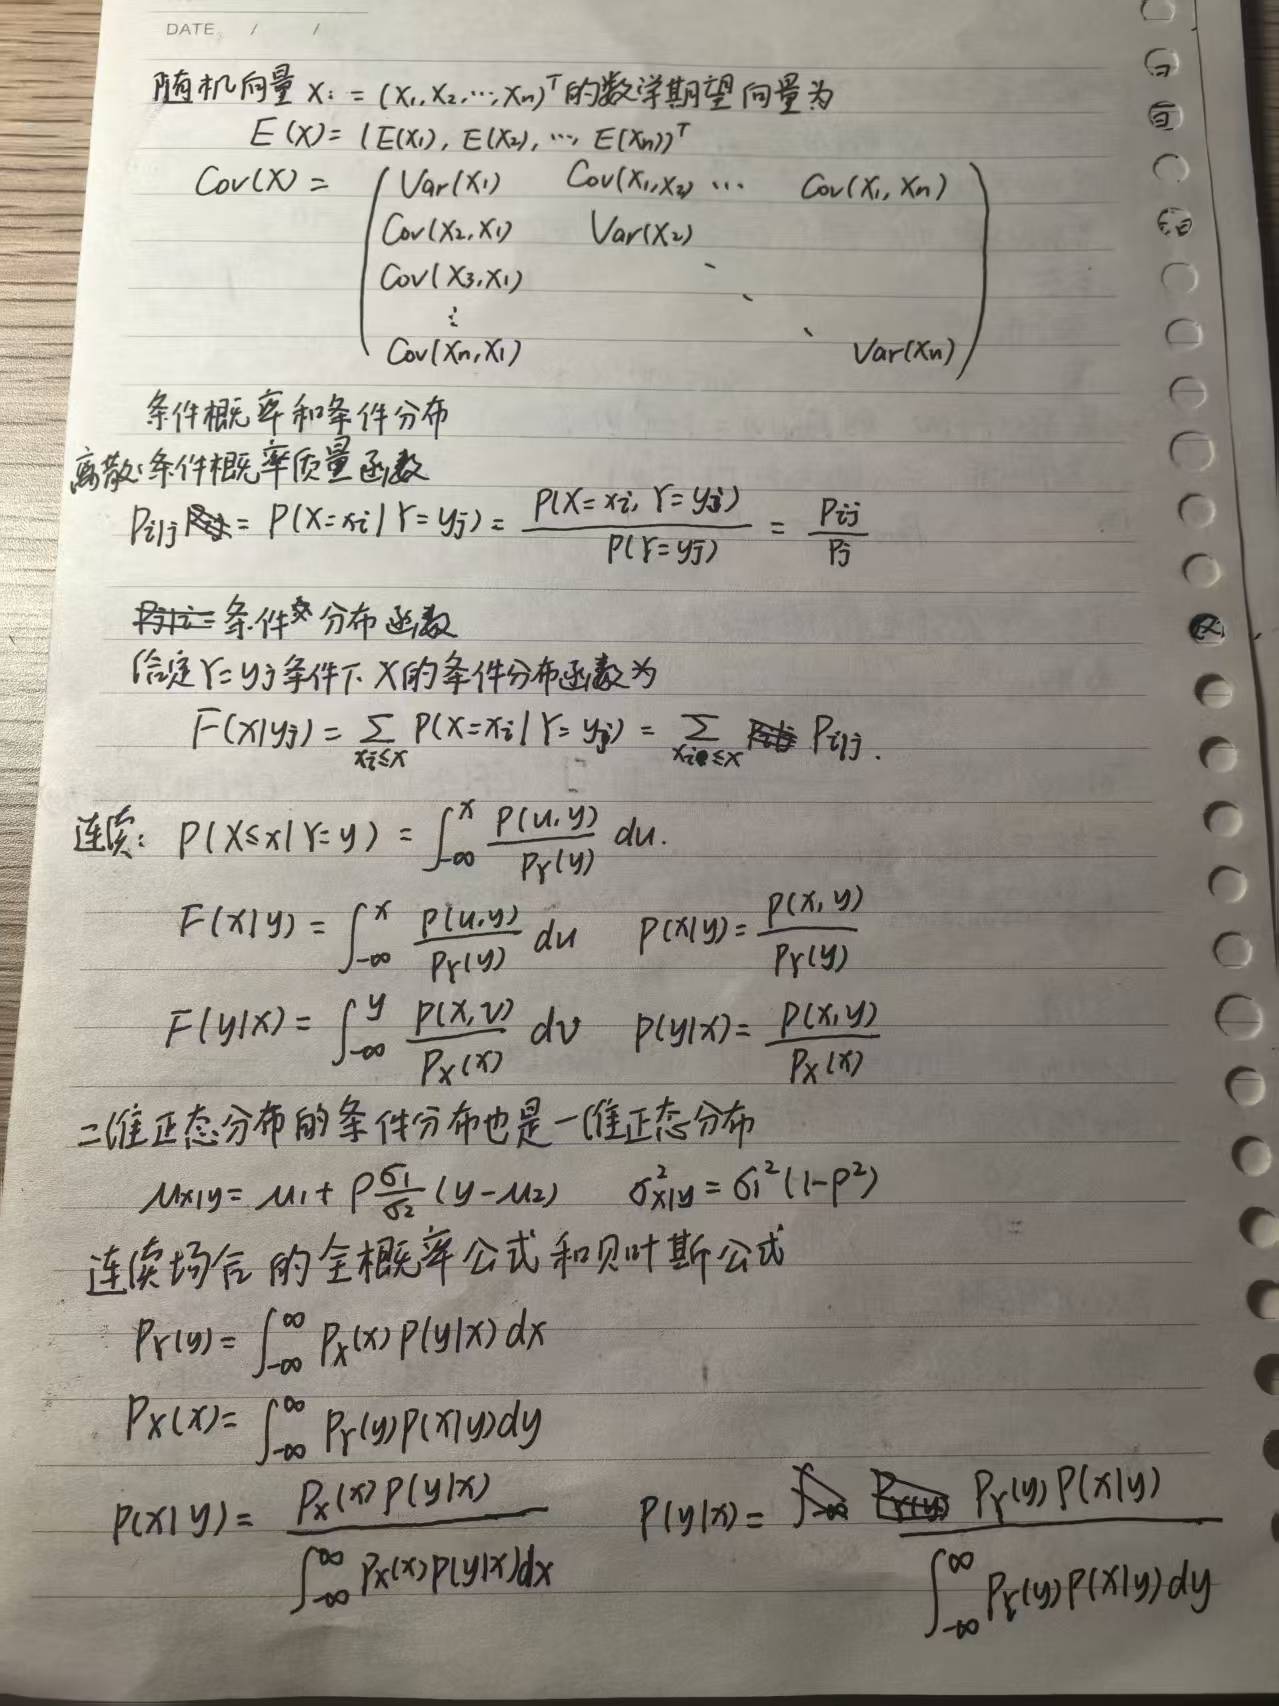 DATE / /
随机向量 X: = (X₁, X₂, ⋯, Xₙ)ᵀ 的数学期望向量为
E(X) = (E(X₁), E(X₂), ⋯, E(Xₙ))ᵀ
Cov(X) = ( Var(X₁) Cov(X₁,X₂) ⋯ Cov(X₁, Xₙ)
Cov(X₂,X₁) Var(X₂)
Cov(X₃,X₁) ⋱
⋮
Cov(Xₙ,X₁) Var(Xₙ) )
条件概率和条件分布
离散:条件概率质量函数
P_{i|j} = P(X=x_i | Y=y_j) = P(X=x_i, Y=y_j) / P(Y=y_j) = P_{ij} / P_j
条件分布函数
给定Y=y_j条件下 X的条件分布函数为
F(x|y_j) = Σ_{x_i≤x} P(X=x_i | Y=y_j) = Σ_{x_i≤x} P_{i|j}.
连续: P(X≤x | Y=y) = ∫_{-∞}^{x} p(u,y) / p_Y(y) du.
F(x|y) = ∫_{-∞}^{x} p(u,y) / p_Y(y) du p(x|y) = p(x,y) / p_Y(y)
F(y|x) = ∫_{-∞}^{y} p(x,v) / p_X(x) dv p(y|x) = p(x,y) / p_X(x)
二维正态分布的条件分布也是一维正态分布
μ_{x|y} = μ₁ + ρ σ₁/σ₂ (y-μ₂) σ²_{x|y} = σ₁²(1-ρ²)
连续场合的全概率公式和贝叶斯公式
P_Y(y) = ∫_{-∞}^{∞} P_X(x) p(y|x) dx
P_X(x) = ∫_{-∞}^{∞} P_Y(y) p(x|y) dy
p(x|y) = P_X(x) p(y|x) / ∫_{-∞}^{∞} P_X(x) p(y|x) dx p(y|x) = P_Y(y) p(x|y) / ∫_{-∞}^{∞} P_Y(y) p(x|y) dy